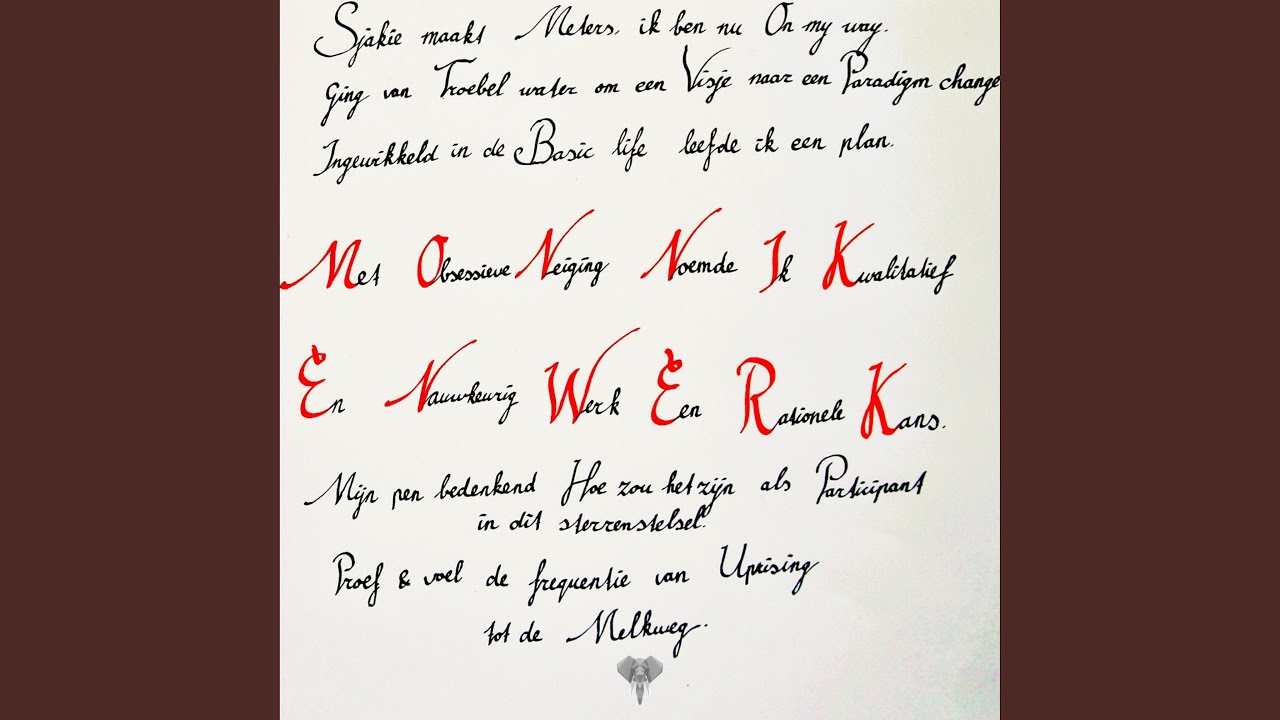 Sjakie maakt Meters, ik ben nu On my way.
Ging van Troebel water om een Visje naar een Paradigm change
Ingewikkeld in de Basic life leefde ik een plan.
Met Obsessieve Neiging Noemde Ik Kwalitatief
En Nauwkeurig Werk Een Rationele Kans.
Mijn pen bedenkend Hoe zou het zijn als Participant
in dit sterrenstelsel.
Proef & voel de frequentie van Uprising
tot de Melkweg.